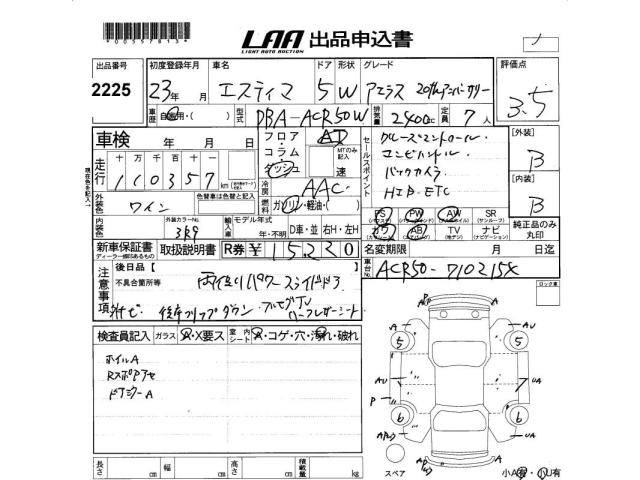 *00557813*
LAA 出品申込書
LIGHT AUTO AUCTION
出品番号 初度登録年月 車名 ドア 形状 グレード 評価点
2225 23年 月 エスティマ 5 W アエラス 20thアニバーサリー 3.5
車歴 自家用・( ) 型式 DBA-ACR50W 排気量 2400cc 定員 7人
車検 年 月 日
フロア コラム ダッシュ AT MTのみ記入 速
セールスポイント クルーズコントロール・
エンビハンドル・
バックカメラ
HID・ETC
[外装] B
[内装] B
走行 十 万 千 百 十 一
110357 km
冷房 AAC
外装色 色替車は色替と記入 ワイン
燃料 ガソリン・軽油・( )
PS PW AW SR (サンルーフ)
カワ AB TV ナビ (ナビゲーション)
純正品のみ丸印
内装色 外装カラーNo. 3R9 輸入車 モデル年式 年・不明 D車・並 右H・左H
新車保証書 取扱説明書 R券 ¥ 15220
ディーラー捺印あるもの
名変期限 月 日迄
車台No. ACR50-7102158
注意事項 後日品 [ ]
不具合箇所等 両側パワースライドドア
フルセグTV
ハーフレザーシート
ロック車
検査員記入 ガラス A・X要ス 室内シート A・コゲ・穴・汚れ・破れ
ホイルA
ドアミラーA
長さ cm 幅 cm 高さ cm 積載量 kg
A
AU
5 5
AU UA
P
6 6
UA
A
スペア 小A有・小U有